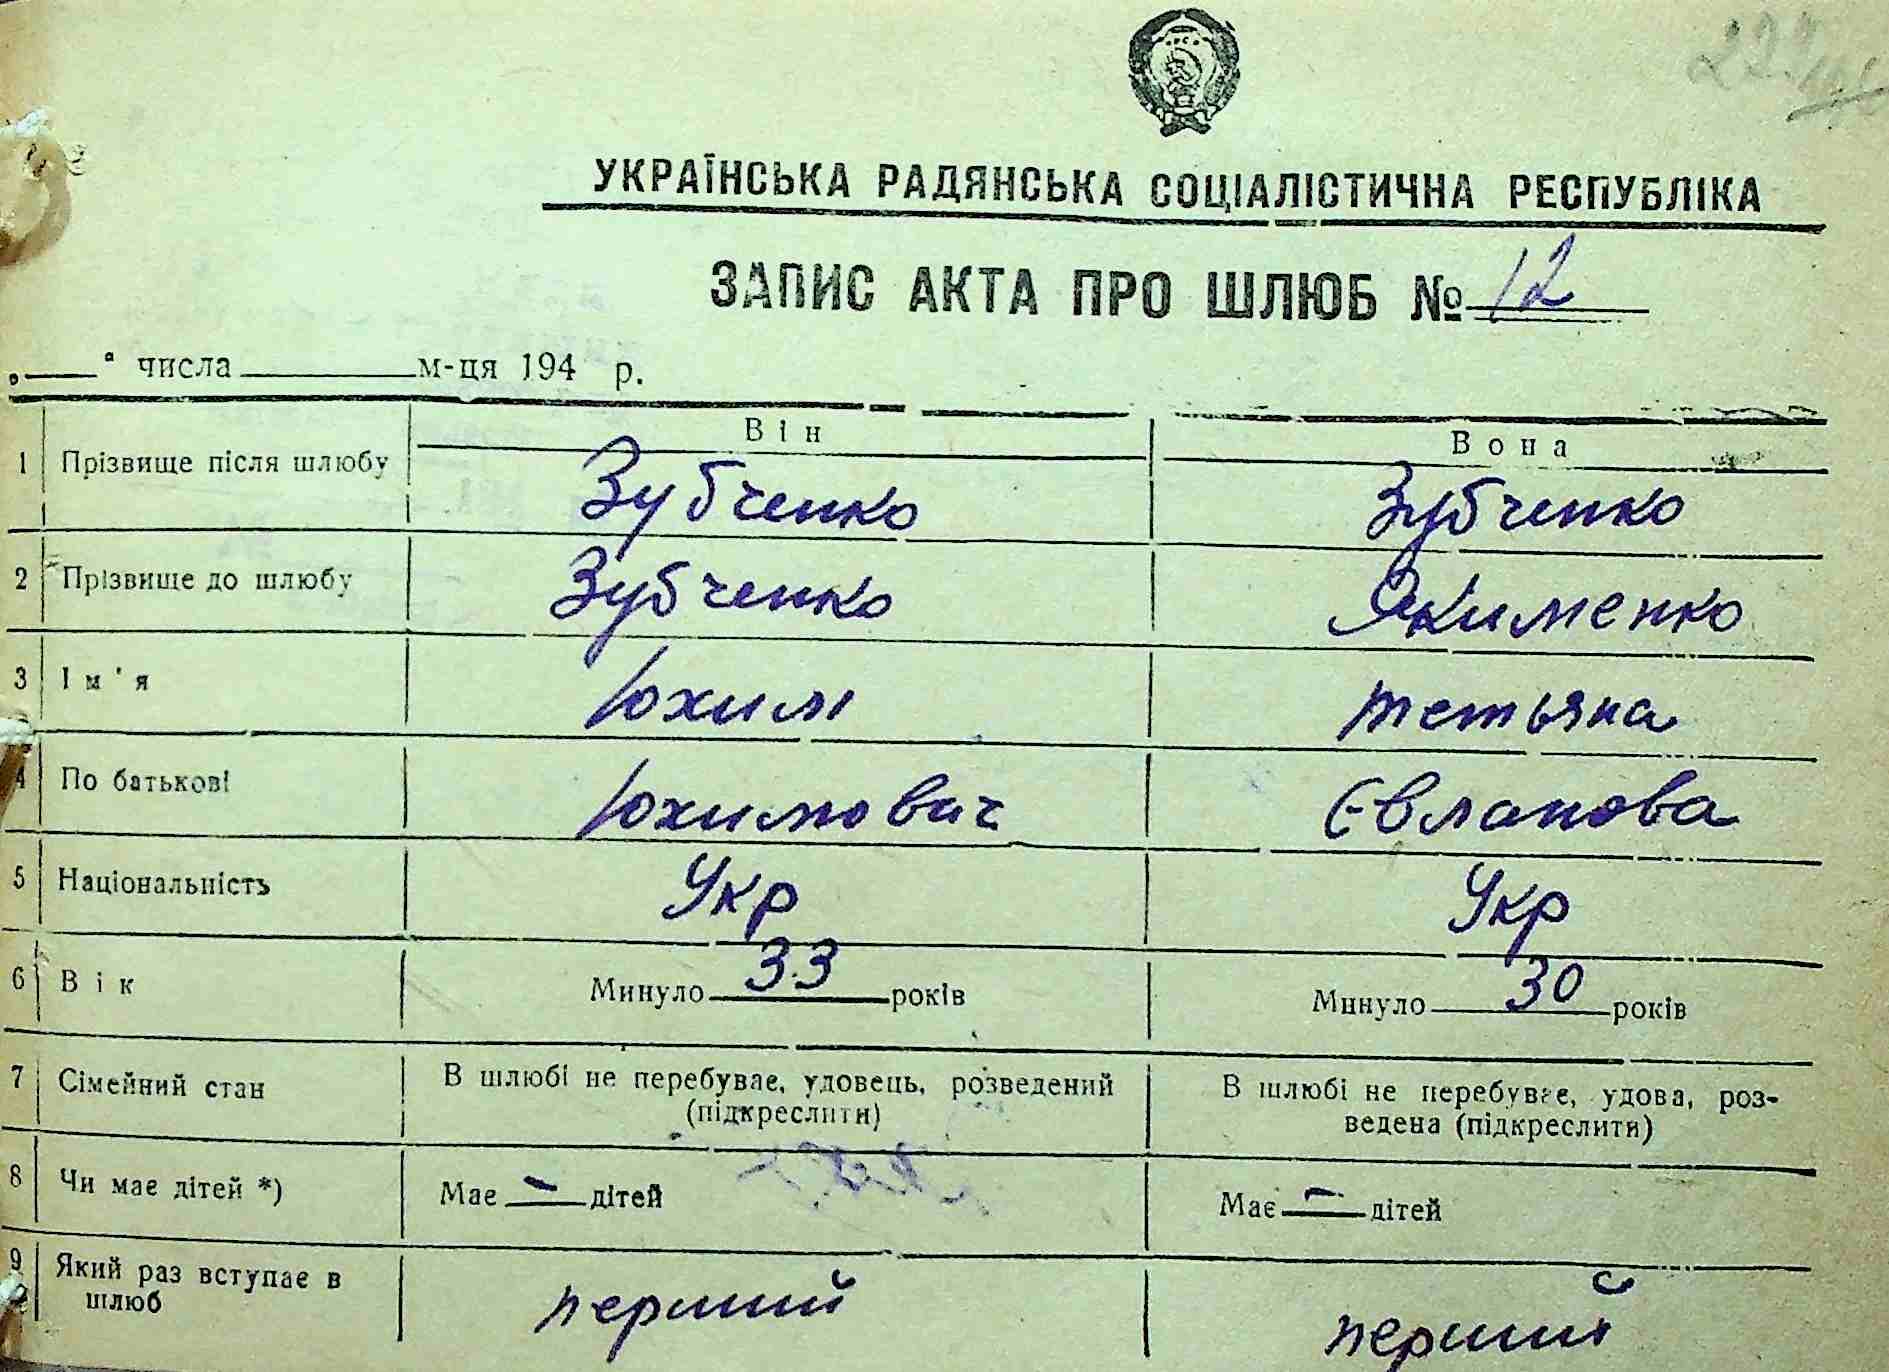 УКРАЇНСЬКА РАДЯНСЬКА СОЦІАЛІСТИЧНА РЕСПУБЛІКА
ЗАПИС АКТА ПРО ШЛЮБ № 12
„ “ числа м-ця 194 р.
Він Вона
1 Прізвище після шлюбу Зубченко Зубченко
2 Прізвище до шлюбу Зубченко Якименко
3 Ім'я Юхим Тетьяна
4 По батькові Юхимович Євлапова
5 Національність Укр Укр
6 Вік Минуло 33 років Минуло 30 років
7 Сімейний стан В шлюбі не перебуває, удовець, розведений В шлюбі не перебуває, удова, роз-
(підкреслити) ведена (підкреслити)
8 Чи має дітей *) Має – дітей Має – дітей
9 Який раз вступає в перший перший
шлюб